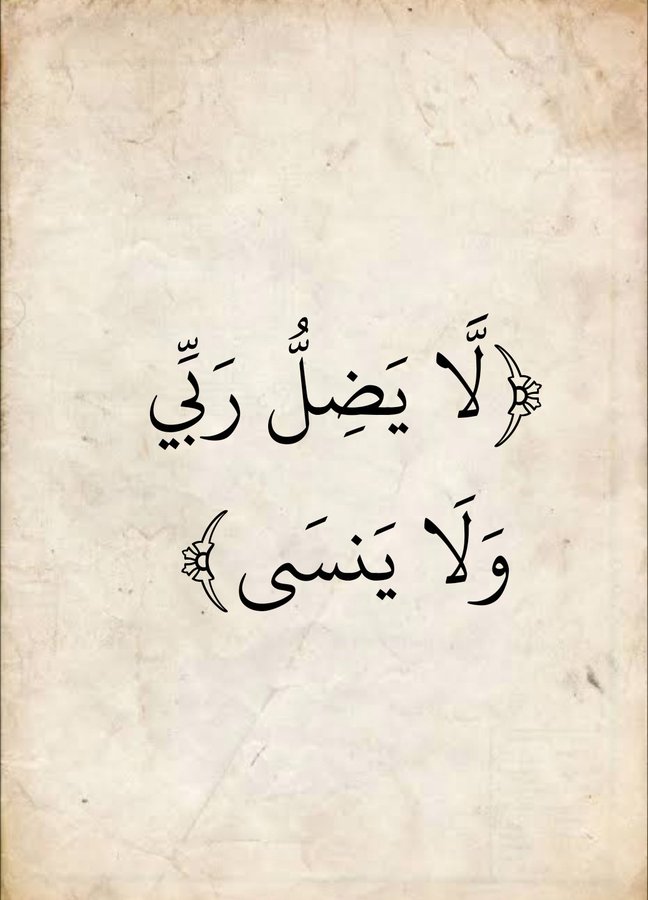 ﴿لَّا يَضِلُّ رَبِّي
وَلَا يَنسَى﴾